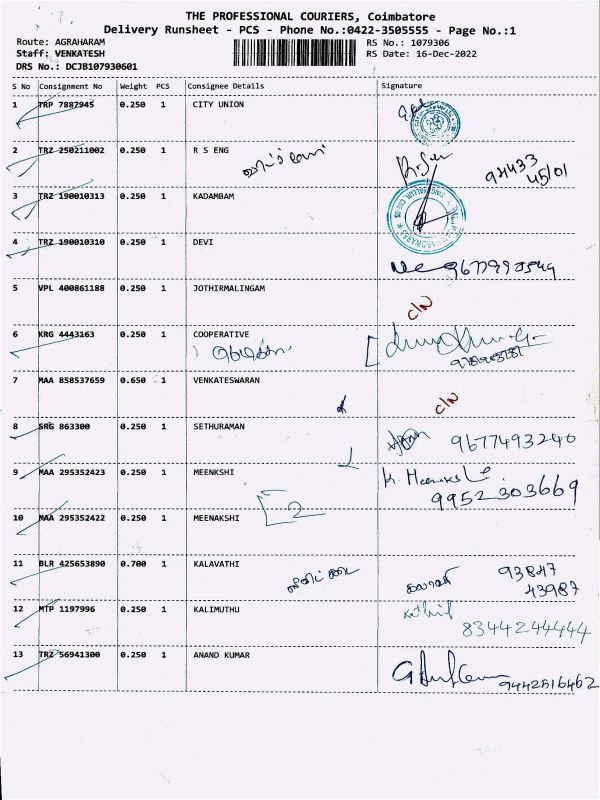 THE PROFESSIONAL COURIERS, Coimbatore
Delivery Runsheet - PCS - Phone No.:0422-3505555 - Page No.:1
Route: AGRAHARAM RS No.: 1079306
Staff: VENKATESH RS Date: 16-Dec-2022
DRS No.: DCJB107930601
S No Consignment No Weight PCS Consignee Details Signature
1 TRP 7887945 0.250 1 CITY UNION
2 TRZ 250211002 0.250 1 R S ENG
98433
45101
3 TRZ 190010313 0.250 1 KADAMBAM
4 TRZ 190010310 0.250 1 DEVI
5 VPL 400861188 0.250 1 JOTHIRMALINGAM C/N
6 KRG 4443163 0.250 1 COOPERATIVE
7 MAA 858537659 0.650 1 VENKATESWARAN C/N
8 SRG 863300 0.250 1 SETHURAMAN 9677493240
9 MAA 295352423 0.250 1 MEENKSHI K. Meenakshi
9952303669
10 MAA 295352422 0.250 1 MEENAKSHI 2
11 BLR 425653890 0.700 1 KALAVATHI 93847
43987
12 MTP 1197996 0.250 1 KALIMUTHU
8344244444
13 TRZ 56941300 0.250 1 ANAND KUMAR
9442516462